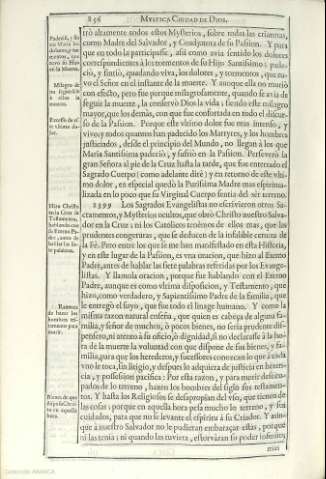 856 MYSTICA CIUDAD DE DIOS.
trò altamente todos estos Mysterios, sobre todas las criaturas,
como Madre del Salvador, y Coadjutora de su Passion. Y para
que en todo la participasse, assi como avia sentido los dolores
correspondientes à los tormentos de su Hijo Santissimo; pade-
ciò, y sintiò, quedando viva, los dolores, y tormentos, que tu-
vo el Señor en el instante de la muerte. Y aunque ella no muriò
con efecto, pero fue porque milagrosamente, quando se avia de
seguir la muerte, la conservò Dios la vida; siendo este milagro
mayor, que los demàs, con que fue confortada en todo el discur-
so de la Passion. Porque este vltimo dolor fue mas intenso, y
vivo; y todos quantos han padecido los Martyres, y los hombres
justiciados, desde el principio del Mundo, no llegan à los que
Maria Santissima padeciò, y sufriò en la Passion. Perseverò la
gran Señora al pie de la Cruz hasta la tarde, que fue enterrado el
Sagrado Cuerpo (como adelante dirè) y en retorno de este vlti-
mo dolor, en especial quedò la Purissima Madre mas espiritua-
lizada en lo poco que su Virginal Cuerpo sentia del sèr terreno.
1399 Los Sagrados Evangelistas no escrivieron otros Sa-
cramentos, y Mysterios ocultos, que obrò Christo nuestro Salva-
dor en la Cruz; ni los Catolicos tenèmos de ellos mas, que las
prudentes congeturas, que se deducen de la infalible certeza de
la Fè. Pero entre los que se me han manifestado en esta Historia,
y en este lugar de la Passion, es vna oracion, que hizo al Eterno
Padre, antes de hablar las siete palabras referidas por los Evange-
listas. Y llamola oracion, porque fue hablando con el Eterno
Padre, aunque es como vltima disposicion, y Testamento, que
hizo, como verdadero, y Sapientissimo Padre de la familia, que
le entregò el suyo, que fue todo el linage humano. Y como la
misma razon natural enseña, que quien es cabeça de alguna fa-
milia, y señor de muchos, ò pocos bienes, no seria prudente dis-
pensero, ni atento à su oficio, ò dignidad, si no declarasse à la ho-
ra de la muerte la voluntad con que dispone de sus bienes, y fa-
milia, para que los herederos, y sucessores conozcan lo que à cada
vno le toca, sin litigio, y despues lo adquiera de justicia en heren-
cia, y possession pacifica: Por esta razon, y para morir desocu-
pados de lo terreno, hazen los hombres del siglo sus testamen-
tos. Y hasta los Religiosos se desapropian del vso, que tienen de
las cosas; porque en aquella hora pesa mucho lo terreno, y sus
cuidados, para que no se levante el espiritu à su Criador. Y aun-
que à nuestro Salvador no le pudieran embaraçar estas, porque
ni las tenia; ni quando las tuviera, estorváran su poder infinito;